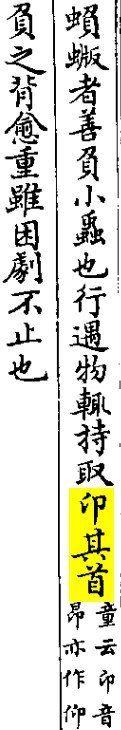 蝜蝂者善負小蟲也行遇物輒持取卬其首
童云卬音
昂亦作仰
負之背愈重雖困劇不止也